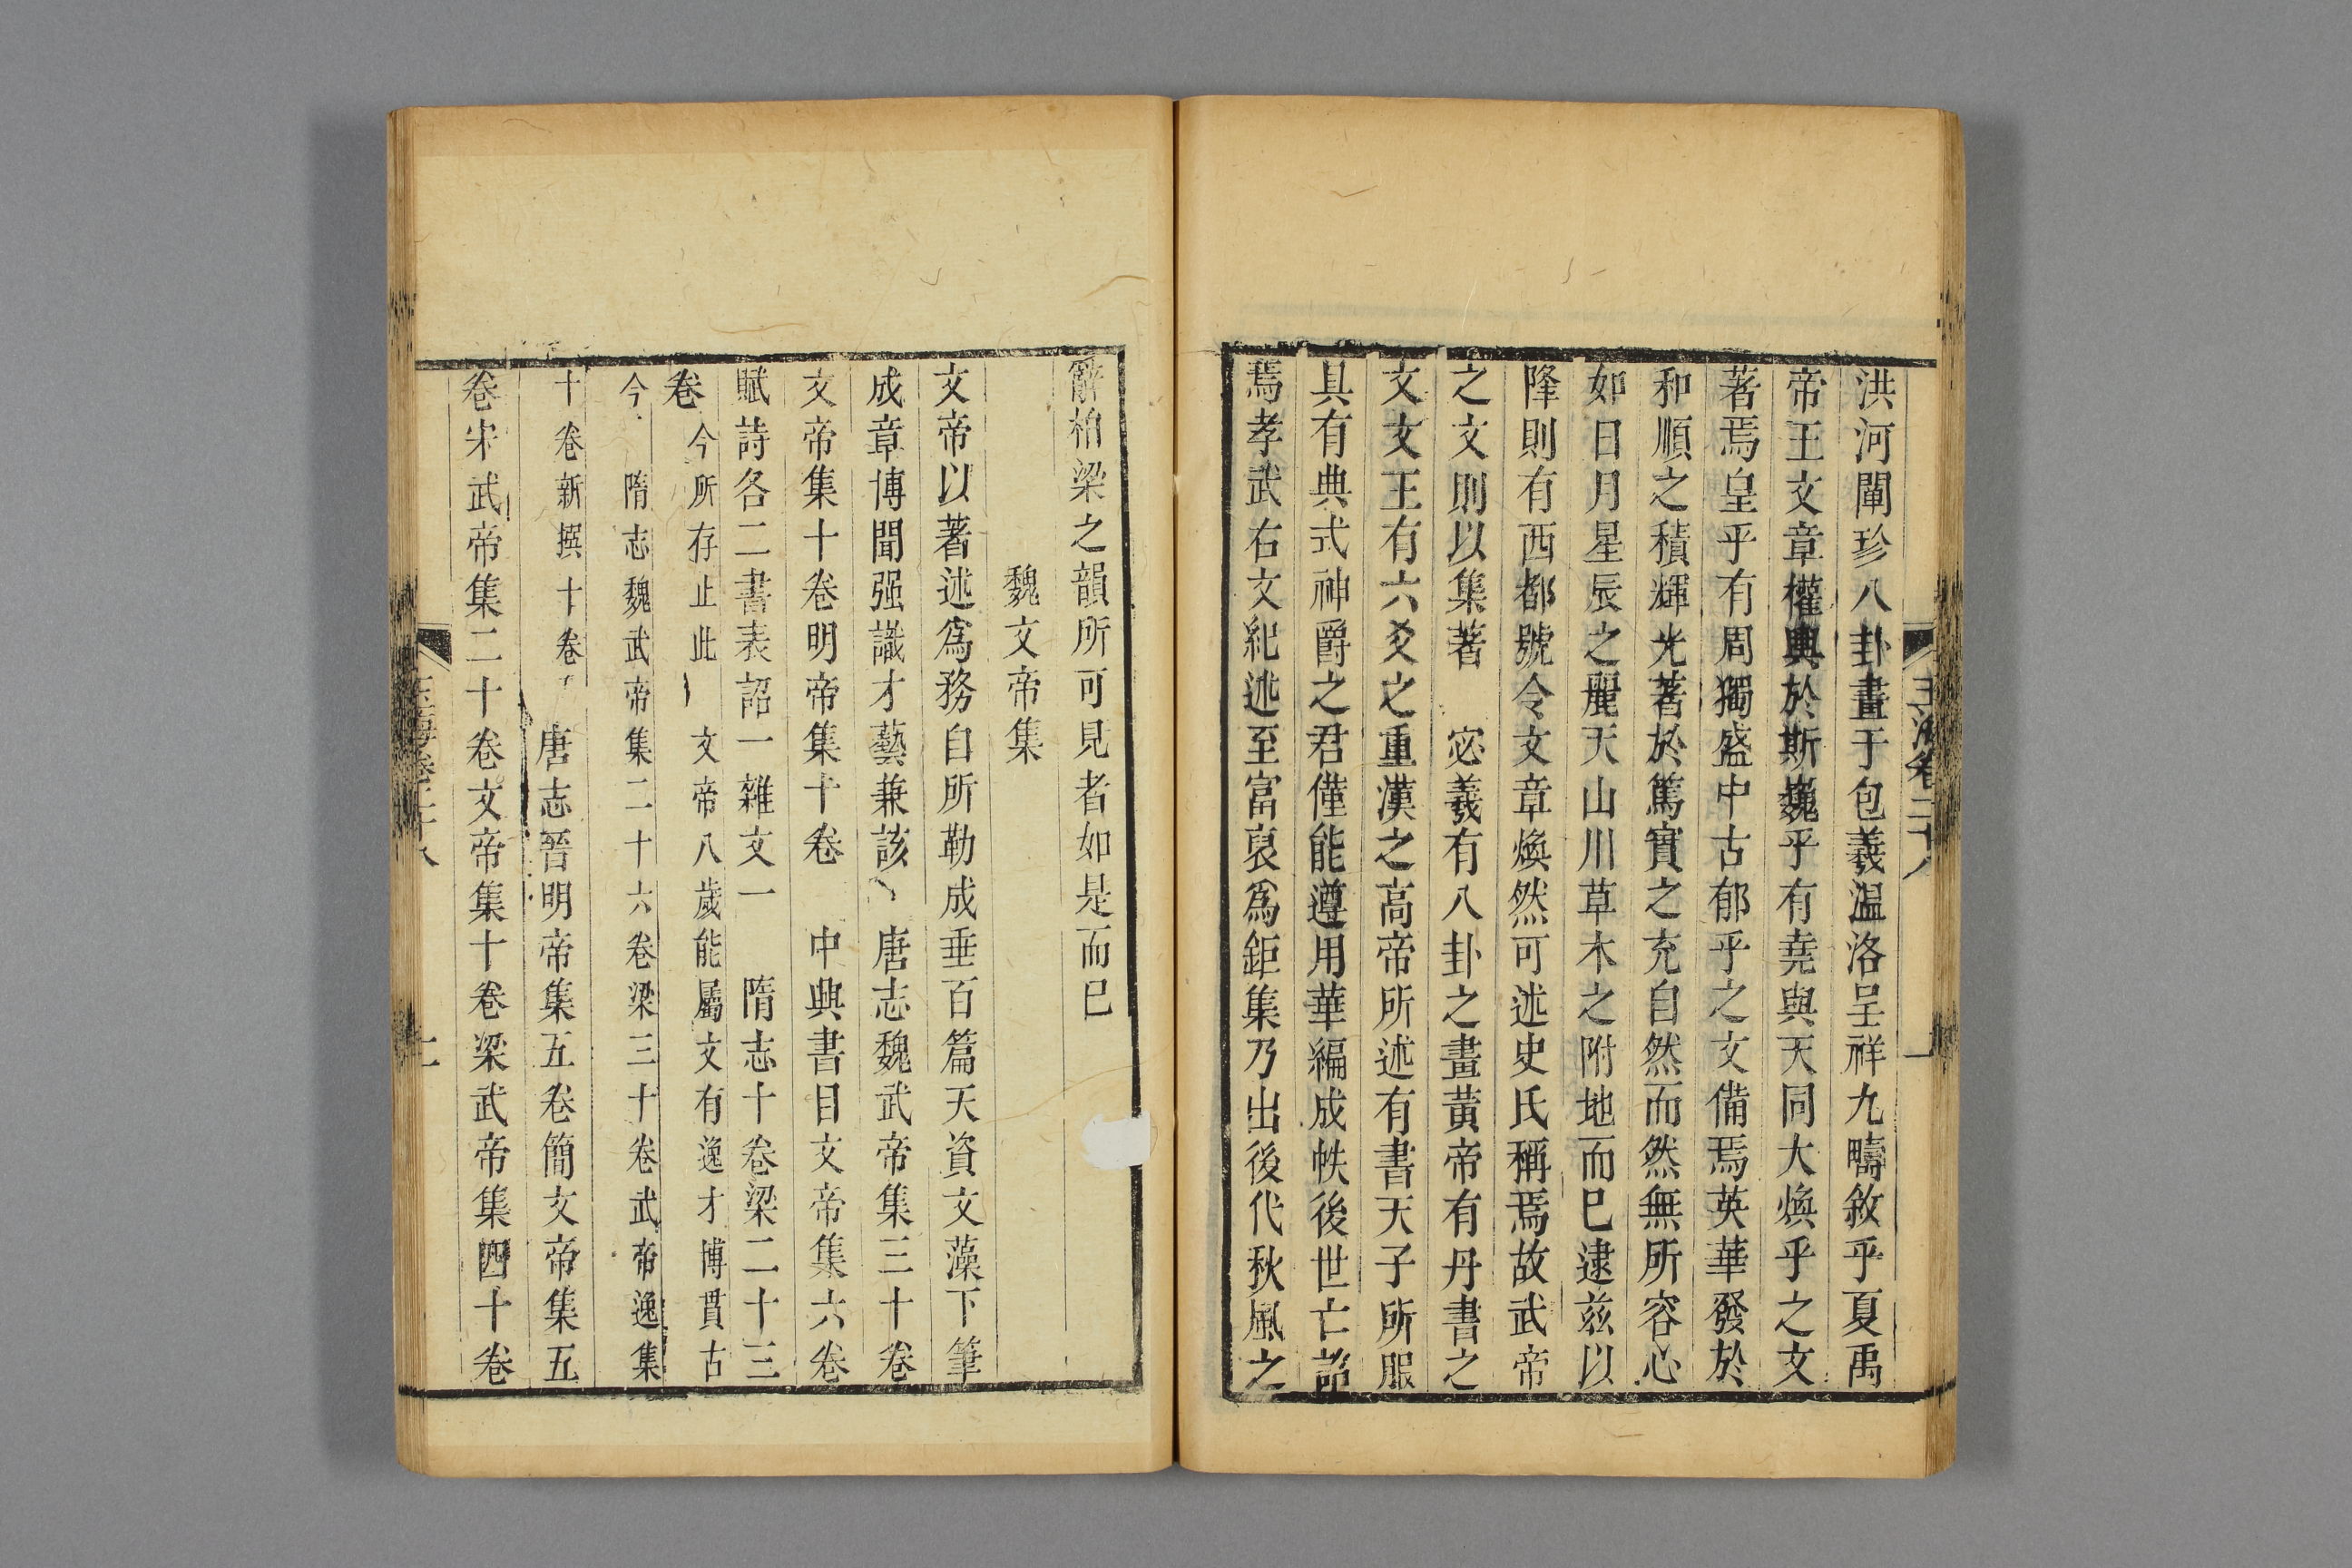 洪河闡珍八卦畫于包羲溫洛呈祥九疇敘乎夏禹
帝王文章權輿於斯巍乎有堯與天同大煥乎之文
著焉皇乎有周獨盛中古郁乎之文備焉英華發於
和順之積輝光著於篤實之充自然而然無所容心
如日月星辰之麗天山川草木之附地而已逮茲以
降則有西都號令文章煥然可述史氏稱焉故武帝
之文則以集著 宓羲有八卦之畫黃帝有丹書之
文文王有六爻之重漢之高帝所述有書天子所服
具有典式神爵之君僅能遵用華編成帙後世亡詔
焉孝武右文紀述至富裒為鉅集乃出後代秋風之
辭柏梁之韻所可見者如是而已
魏文帝集
文帝以著述為務自所勒成垂百篇天資文藻下筆
成章博聞强識才藝兼該 唐志魏武帝集三十卷
文帝集十卷明帝集十卷 中興書目文帝集六卷
賦詩各二書表詔一雜文一 隋志十卷梁二十三
卷 今所存止此 文帝八歲能屬文有逸才博貫古
今 隋志魏武帝集二十六卷梁三十卷武帝逸集
十卷新撰十卷 唐志晉明帝集五卷簡文帝集五
卷宋武帝集二十卷文帝集十卷梁武帝集四十卷
玉海卷二十八